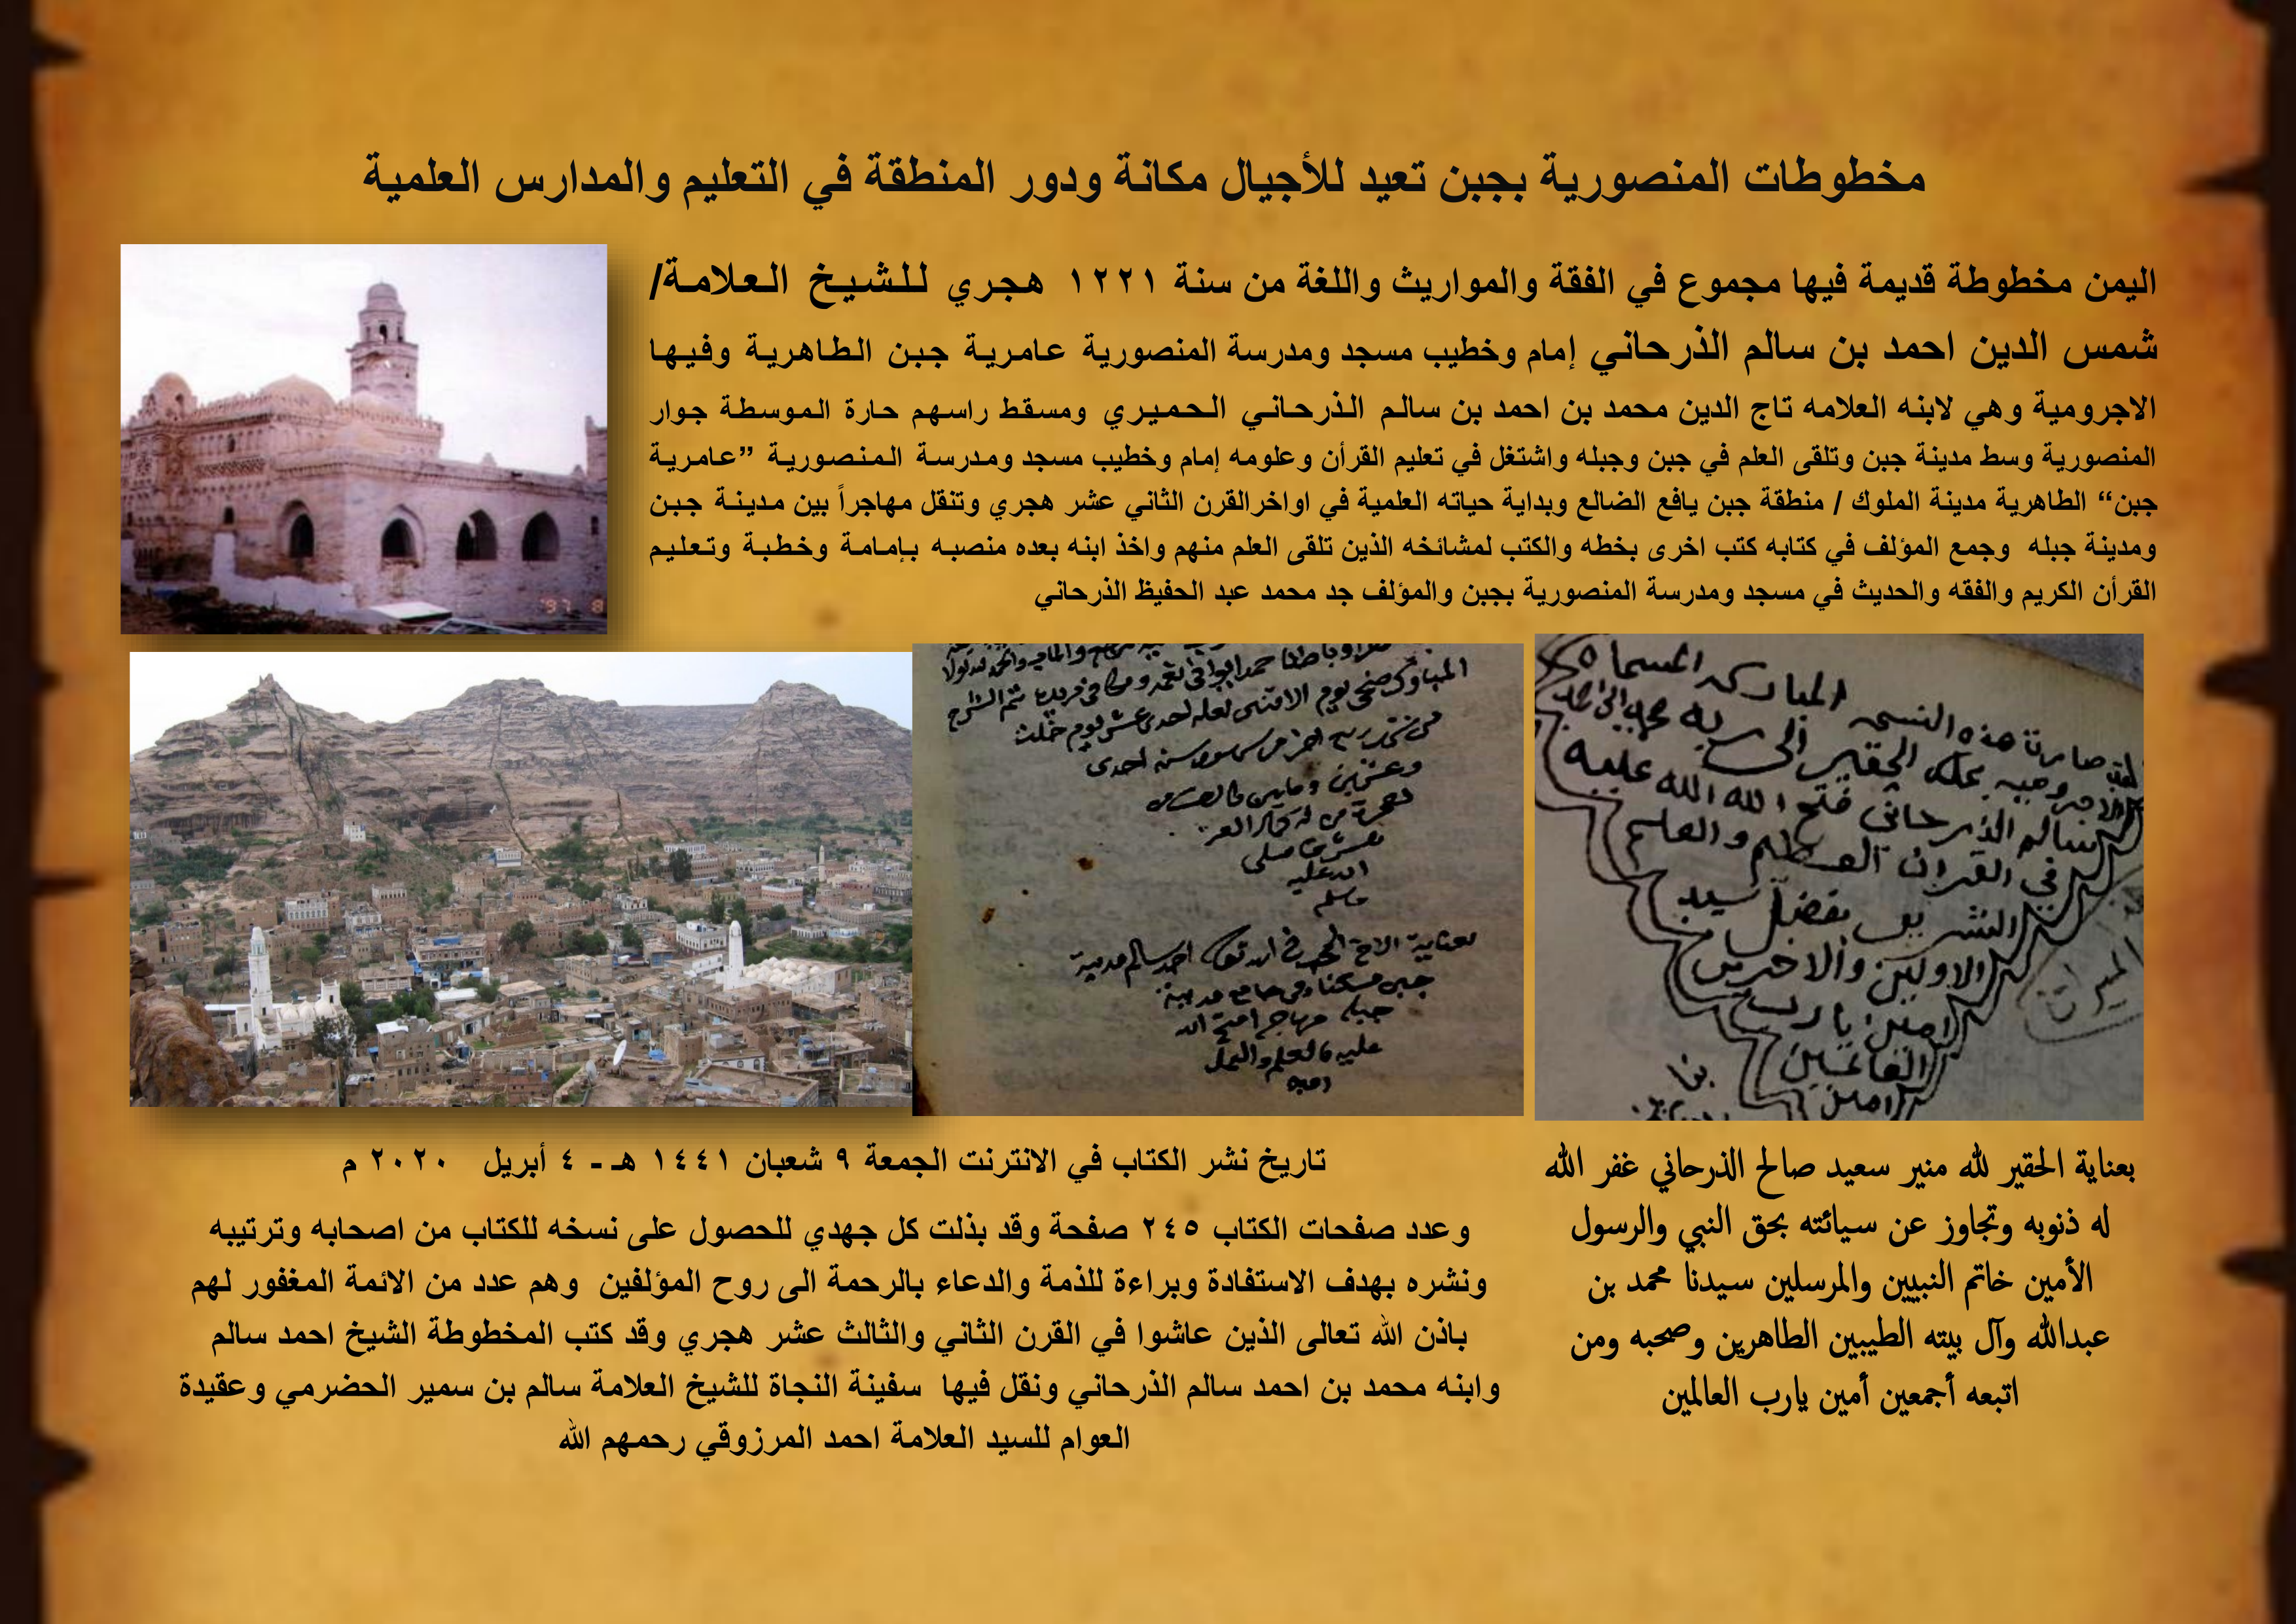 مخطوطات المنصورية بجبن تعيد للأجيال مكانة ودور المنطقة في التعليم والمدارس العلمية
اليمن مخطوطة قديمة فيها مجموع في الفقة والمواريث واللغة من سنة ١٢٢١ هجري للشيخ العلامة/
شمس الدين احمد بن سالم الذرحاني إمام وخطيب مسجد ومدرسة المنصورية عامرية جبن الطاهرية وفيها
الاجرومية وهي لابنه العلامه تاج الدين محمد بن احمد بن سالم الذرحاني الحميري ومسقط راسهم حارة الموسطة جوار
المنصورية وسط مدينة جبن وتلقى العلم في جبن وجبله واشتغل في تعليم القرأن وعلومه إمام وخطيب مسجد ومدرسة المنصورية ”عامرية
جبن“ الطاهرية مدينة الملوك / منطقة جبن يافع الضالع وبداية حياته العلمية في اواخرالقرن الثاني عشر هجري وتنقل مهاجراً بين مدينة جبن
ومدينة جبله وجمع المؤلف في كتابه كتب اخرى بخطه والكتب لمشائخه الذين تلقى العلم منهم واخذ ابنه بعده منصبه بإمامة وخطبة وتعليم
القرأن الكريم والفقه والحديث في مسجد ومدرسة المنصورية بجبن والمؤلف جد محمد عبد الحفيظ الذرحاني
صارت هذه النسخه المباركه المسماه
سالم الذرحاني فتح الله الله عليه
في القران العظيم والعلم
الشريف بفضل سيد
الاولين والاخرين
امين يا رب
العالمين
امين
الميراث
وعشرين ومايتين
صلى
الله عليه
وسلم
احمد سالم مدينة
جبن مسكنا وفي جامع مدينة
جبله مهاجر افتح الله
عليه بالعلم والعمل
امين
بعناية الحقير لله منير سعيد صالح الذرحاني غفر الله
له ذنوبه وتجاوز عن سيائته بحق النبي والرسول
الأمين خاتم النبيين والمرسلين سيدنا محمد بن
عبدالله وآل بيته الطيبين الطاهرين وصحبه ومن
اتبعه أجمعين أمين يارب العالمين
تاريخ نشر الكتاب في الانترنت الجمعة ٩ شعبان ١٤٤١ هـ - ٤ أبريل ٢٠٢٠ م
وعدد صفحات الكتاب ٢٤٥ صفحة وقد بذلت كل جهدي للحصول على نسخه للكتاب من اصحابه وترتيبه
ونشره بهدف الاستفادة وبراءة للذمة والدعاء بالرحمة الى روح المؤلفين وهم عدد من الائمة المغفور لهم
باذن الله تعالى الذين عاشوا في القرن الثاني والثالث عشر هجري وقد كتب المخطوطة الشيخ احمد سالم
وابنه محمد بن احمد سالم الذرحاني ونقل فيها سفينة النجاة للشيخ العلامة سالم بن سمير الحضرمي وعقيدة
العوام للسيد العلامة احمد المرزوقي رحمهم الله